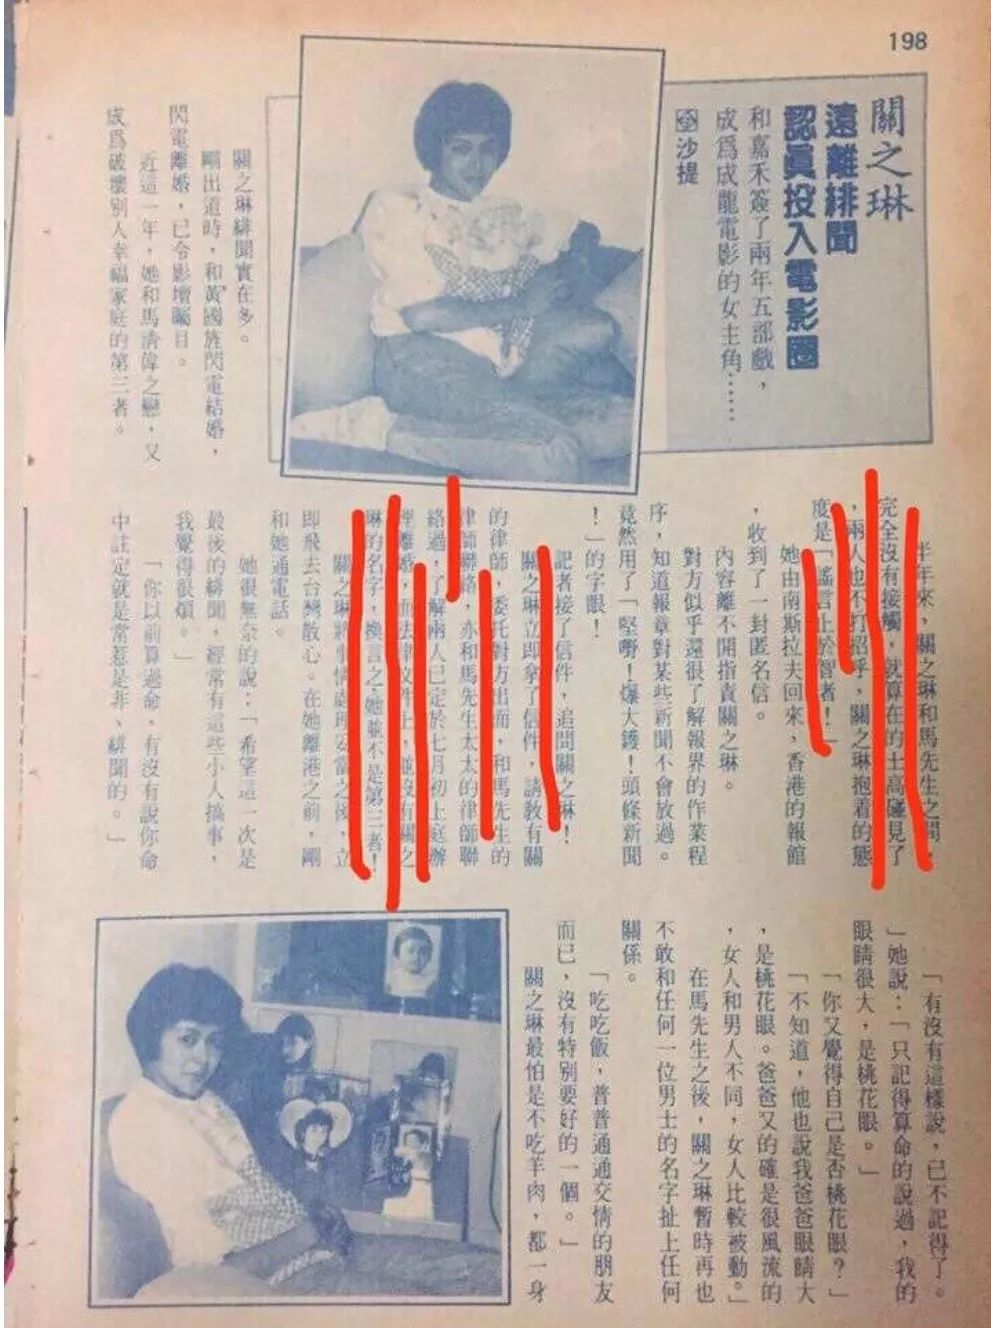 198
關之琳
遠離緋聞
認眞投入電影圈
和嘉禾簽了兩年五部戲，
成爲成龍電影的女主角……
沙提
關之琳緋聞實在多。
剛出道時，和黃國旌閃電結婚，
閃電離婚，已令影壇矚目。
近這一年，她和馬淸偉之戀，又
成爲破壞別人幸福家庭的第三者。
半年來，關之琳和馬先生之間，
完全沒有接觸，就算在的士高碰見了
，兩人也不打招呼，關之琳抱着的態
度是「謠言止於智者！」
她由南斯拉夫回來，香港的報館
，收到了一封匿名信。
內容離不開指責關之琳。
對方似乎還很了解報界的作業程
序，知道報章對某些新聞不會放過。
竟然用了「堅嘢！爆大鑊！頭條新聞
！」的字眼！
記者接了信件，追問關之琳！
關之琳立即拿了信件，請教有關
的律師，委托對方出面，和馬先生的
律師聯絡，亦和馬先生太太的律師聯
絡過，了解兩人已定於七月初上庭辦
理離婚，而法律文件上，並沒有關之
琳的名字，換言之，她並不是第三者！
關之琳將事情處理妥當之後，立
即飛去台灣散心。在她離港之前，剛
和她通電話。
她很無奈的說：「希望這一次是
最後的緋聞，經常有這些小人搞事，
我覺得很煩。」
「你以前算過命，有沒有說你命
中註定就是常惹是非、緋聞的。」
「有沒有這樣說，已不記得了。
」她說：「只記得算命的說過，我的
眼睛很大，是桃花眼。」
「你又覺得自己是否桃花眼？」
「不知道，他也說我爸爸眼睛大
，是桃花眼。爸爸又的確是很風流的
，女人和男人不同，女人比較被動。」
在馬先生之後，關之琳暫時再也
不敢和任何一位男士的名字扯上任何
關係。
「吃吃飯，普普通交情的朋友
而已，沒有特別要好的一個。」
關之琳最怕是不吃羊肉，都一身